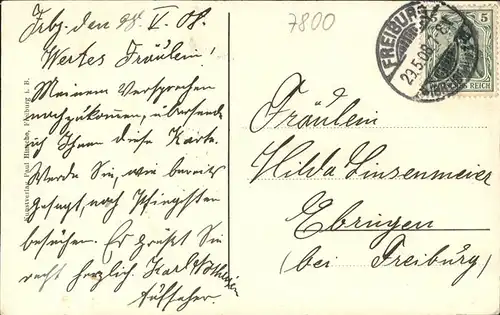 7800
Frbg. den 28. V. 08.
Wertes Fräulein!
Meinem Versprechen
nachzukommen, übersende
ich Ihnen diese Karte.
Werde Sie, wie bereits
gesagt, nach Pfingsten
besuchen. Es grüßt Sie
recht herzlich. Karl
Aufseher.
Kunstverlag, Paul Hinsche, Freiburg i. B.
FREIBURG
29.5.08
(BREISGAU)
5
5
DEUTSCHES REICH
Fräulein
Hilda Linsenmeier
Ebringen
(bei Freiburg)